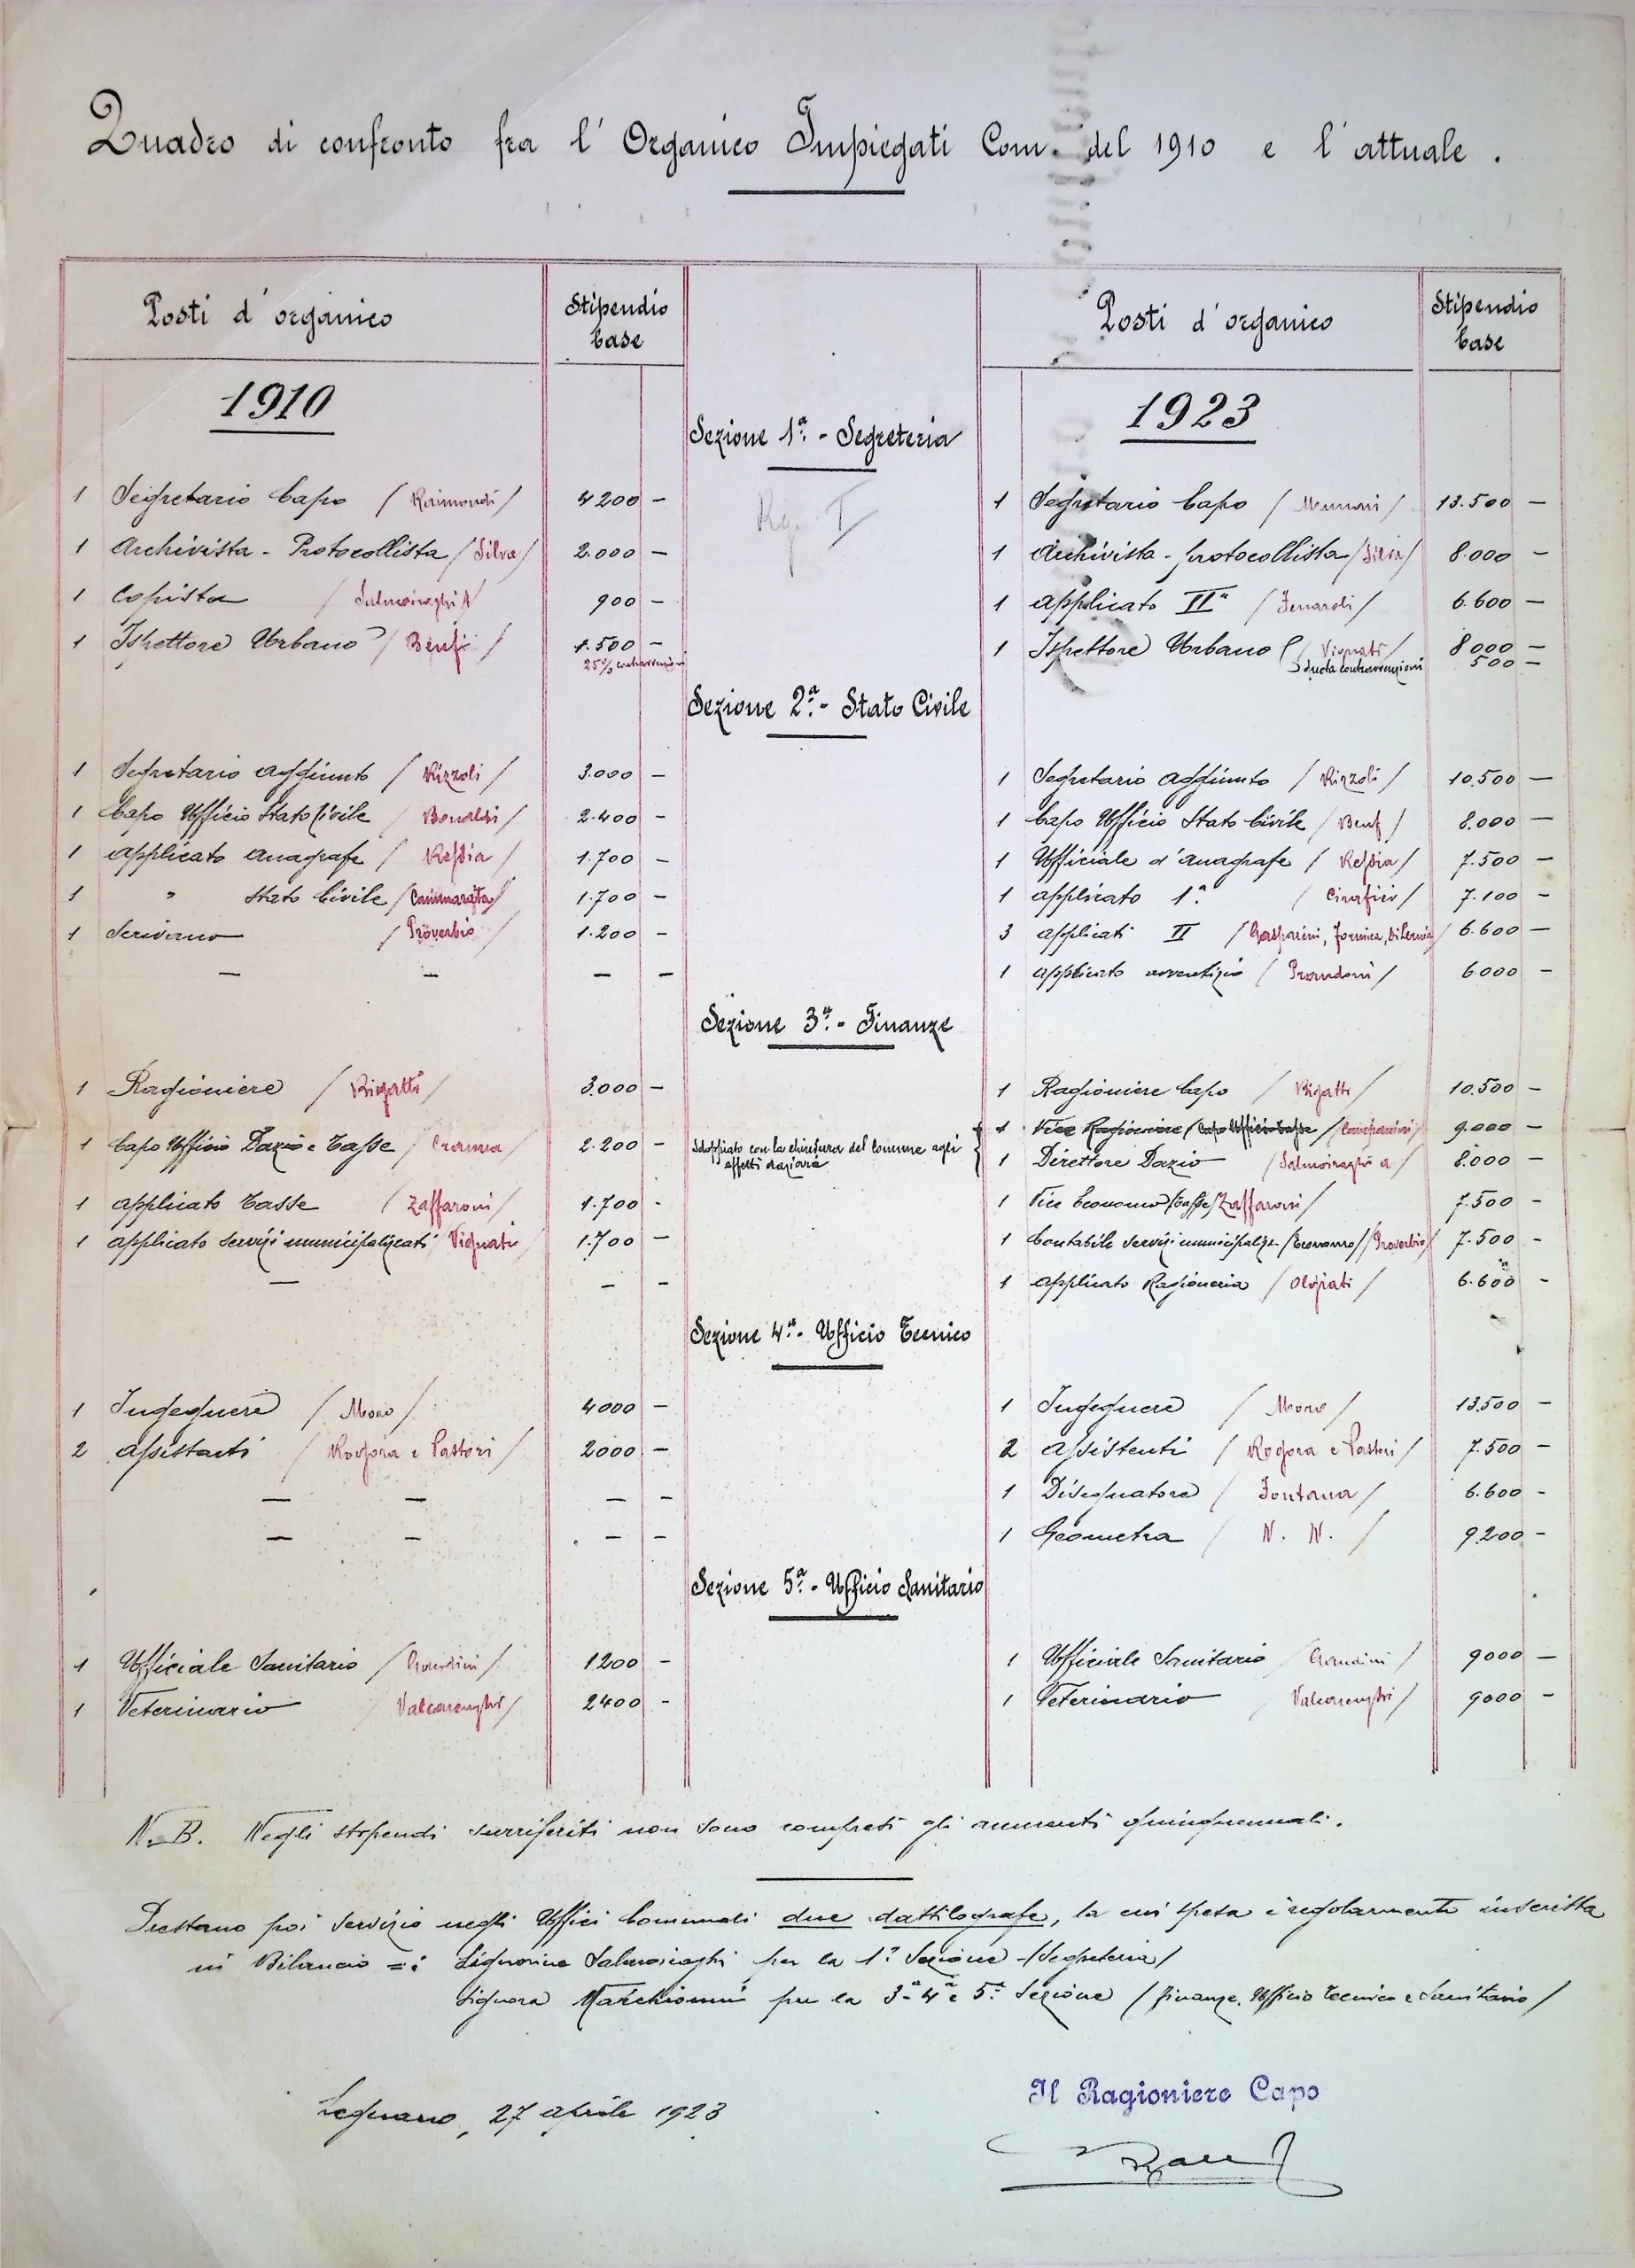 Quadro di confronto fra l' Organico Impiegati Com. del 1910 e l' attuale.
Posti d' organico
Stipendio base
Posti d' organico
Stipendio base
1910
1923
Sezione 1ª - Segreteria
1 Segretario Capo / Raimondi / 4200 —
1 Segretario Capo / / 13.500 —
1 Archivista - Protocollista / Silva / 2.000 —
1 Archivista - protocollista / Silva / 8.000 —
1 Copista / Salmoiraghi A / 900 —
1 applicato IIª / / 6.600 —
1 Ispettore Urbano / / 1.500 —
25% contravvenzioni
1 Ispettore Urbano / Vignati / 8000 —
contravvenzioni 500 —
Sezione 2ª - Stato Civile
1 Segretario aggiunto / Rizzoli / 3.000 —
1 Segretario aggiunto / Rizzoli / 10.500 —
1 Capo Ufficio Stato Civile / Bonaldi / 2.400 —
1 Capo Ufficio Stato Civile / / 8.000 —
1 applicato anagrafe / / 1.700 —
1 Ufficiale d'anagrafe / / 7.500 —
1 " Stato Civile / Cammarata / 1.700 —
1 applicato 1ª / / 7.100 —
1 Scrivano / Proverbio / 1.200 —
3 applicati II / Gasparini, Formica, / 6.600 —
— — — —
1 applicato avventizio / Prandoni / 6000 —
Sezione 3ª - Finanze
1 Ragioniere / Bigatti / 3.000 —
1 Ragioniere Capo / Bigatti / 10.500 —
1 Capo Ufficio Dazio e Tasse / / 2.200 —
Sdoppiato con la chiusura del Comune agli
effetti daziari
1 Vice Ragioniere / Capo Ufficio Tasse / / 9.000 —
1 Direttore Dazio / Salmoiraghi A / 8.000 —
1 applicato Tasse / Zaffaroni / 1.700 -
1 Vice Economo / Tasse / Zaffaroni / 7.500 -
1 applicato servizi municipalizzati / Vignati 1.700 —
1 Contabile servizi municipalizz. / Economo / / Proverbio / 7.500 -
— — -
1 applicato Ragioneria / Olgiati / 6.600 -
Sezione 4ª - Ufficio Tecnico
1 Ingegnere / Moro / 4000 —
1 Ingegnere / Moro / 13.500 —
2 assistenti / Rogora e Pastori / 2000 —
2 assistenti / Rogora e Pastori / 7.500 —
— — — -
1 Disegnatore / Fontana / 6.600 -
— — — -
1 Geometra / N. N. / 9.200 -
Sezione 5ª - Ufficio Sanitario
1 Ufficiale Sanitario / Gandini / 1200 -
1 Ufficiale Sanitario / Gandini / 9000 —
1 Veterinario / Valcarenghi / 2400 -
1 Veterinario / Valcarenghi / 9000 -
N.B. Negli stipendi surriferiti non sono compresi gli aumenti quinquennali.
Prestano poi servizio negli Uffici Comunali due dattilografe, la cui spesa è regolarmente inscritta
in Bilancio =: Signorina Salmoiraghi per la 1ª Sezione / Segreteria /
Signora Marchionni per la 3ª 4ª e 5ª Sezione / Finanze, Ufficio Tecnico e Sanitario /
Legnano, 27 aprile 1923
Il Ragioniere Capo